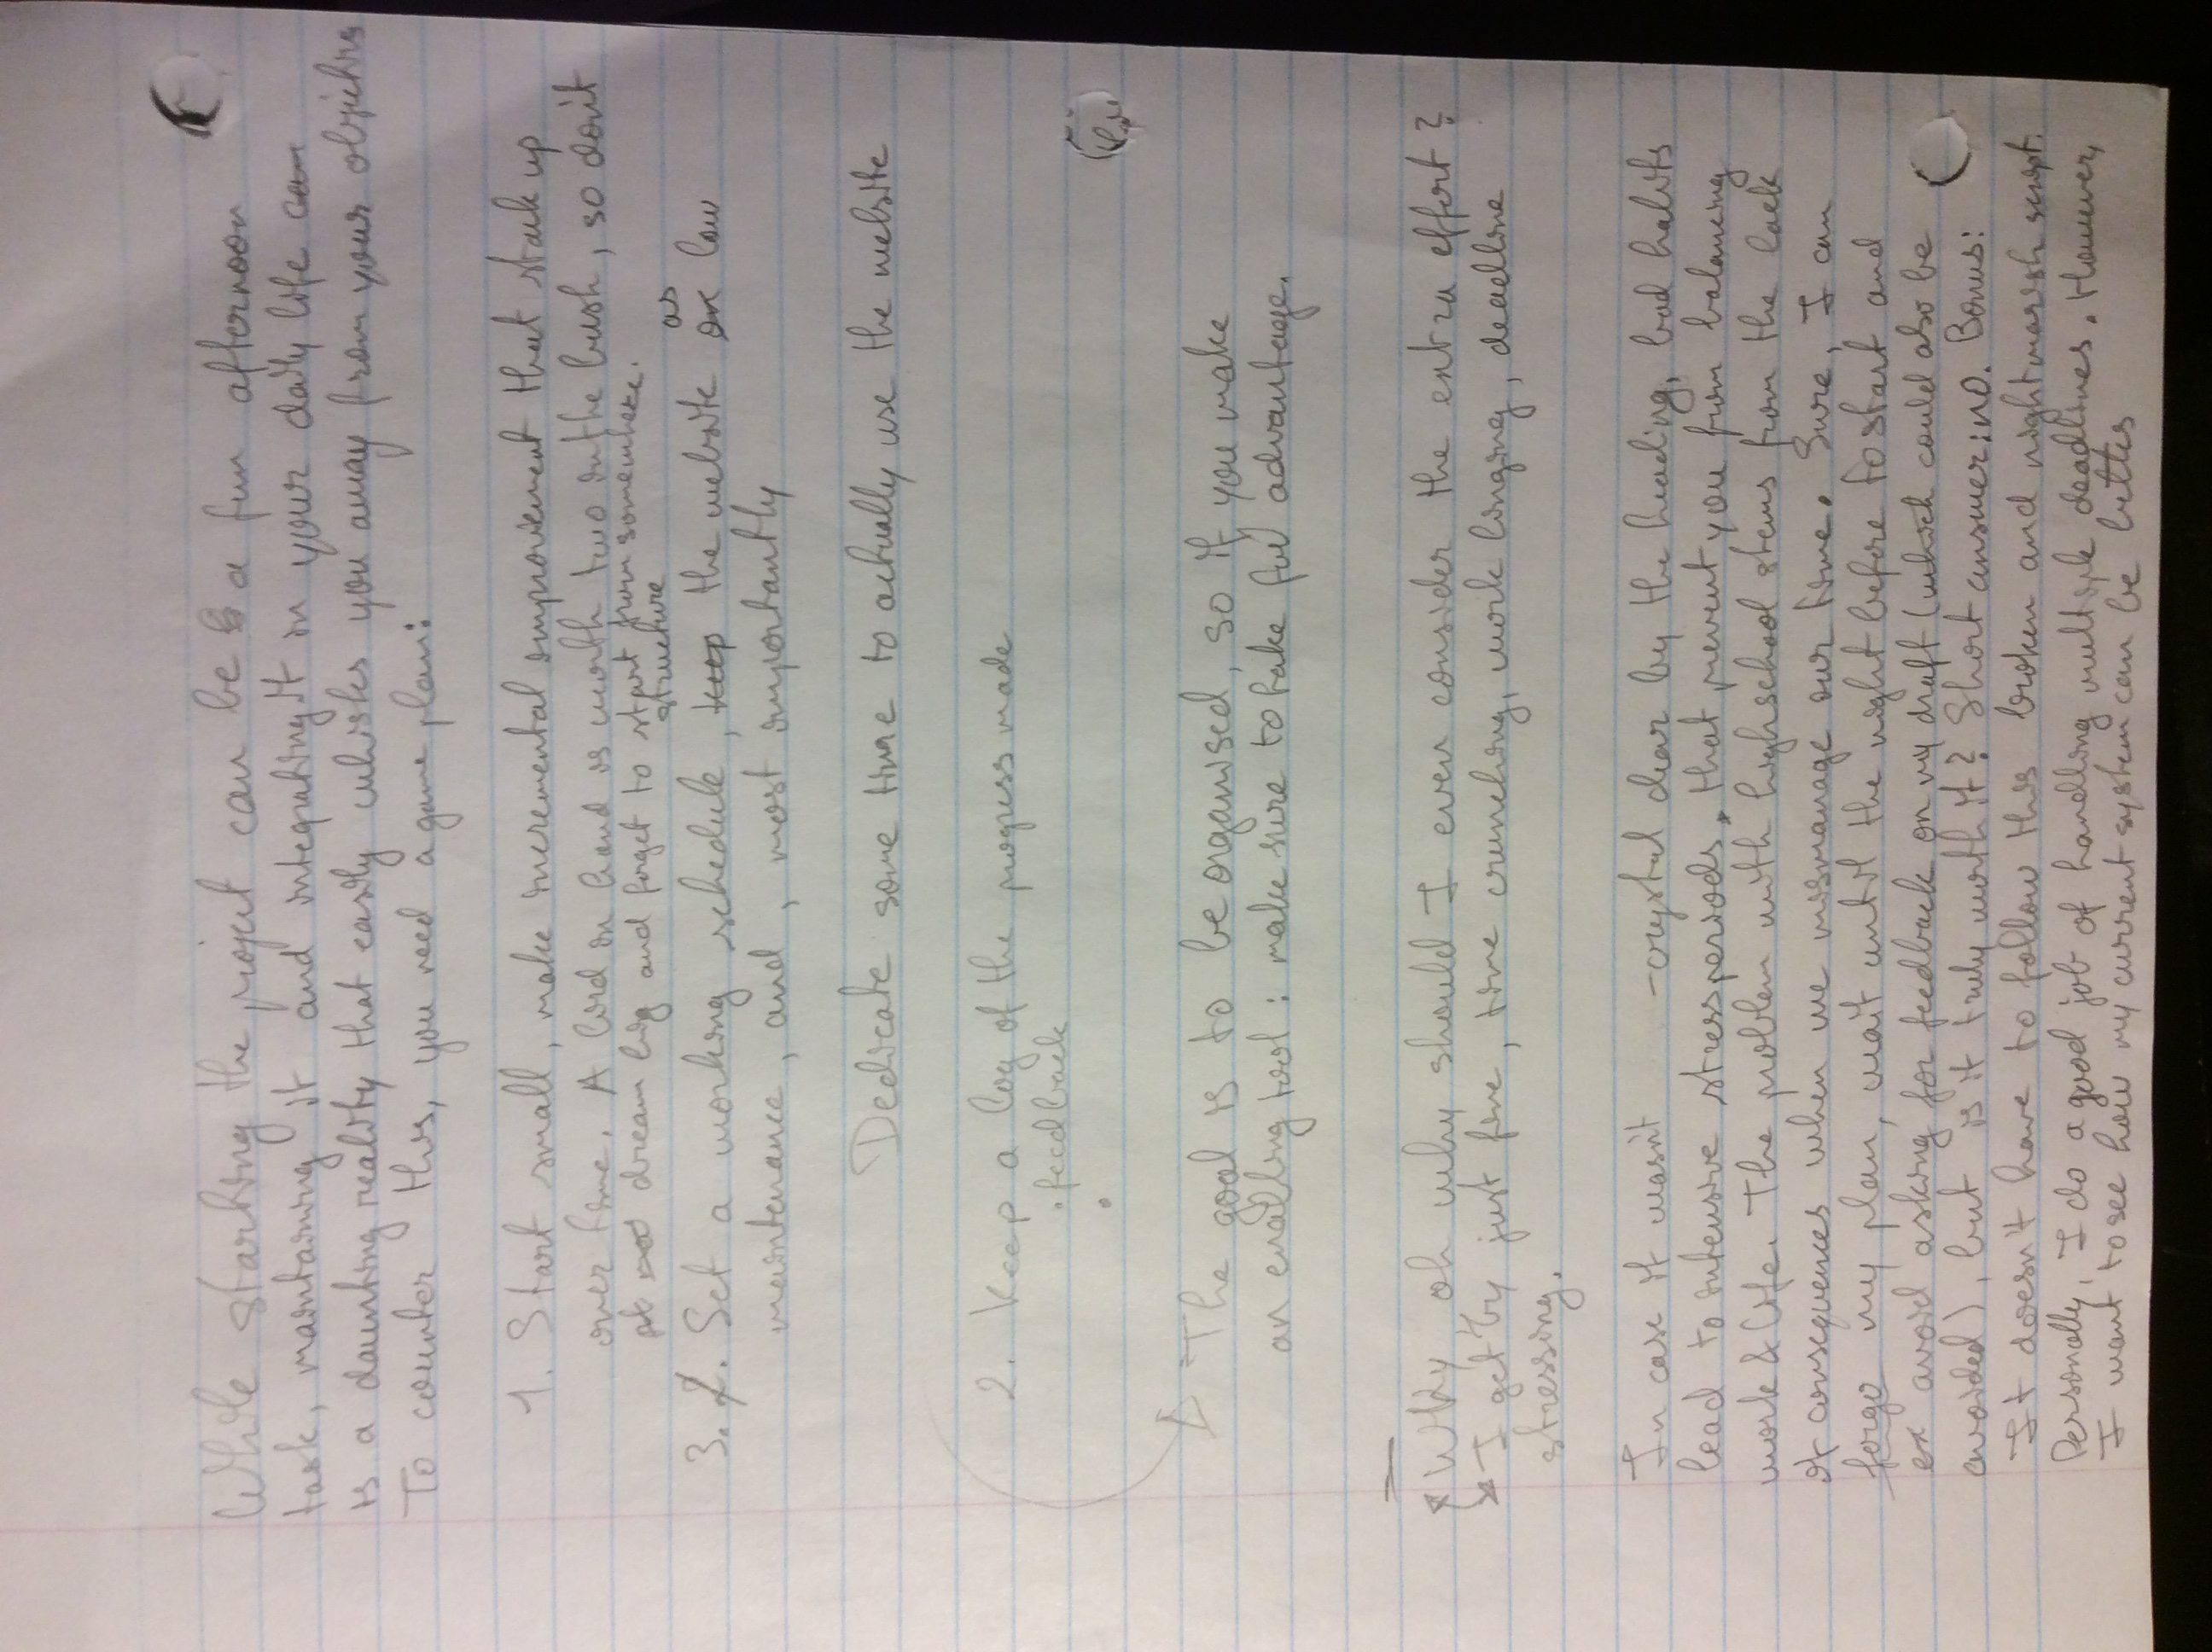 While starting the project can be a fun afternoon
task, maintaining it and integrating it in your daily life can
is a daunting reality that easily whisks you away from your objectives
To counter this, you need a game plan:
1. Start small, make incremental improvement that stack up
over time. A bird in hand is worth two in the bush, so don't
dream big and forget to start from somewhere.
structure as
3. 2. Set a working schedule, keep the website low
maintenance, and, most importantly
Dedicate some time to actually use the website
2. Keep a log of the progress made
• feedback
•
The goal is to be organised, so if you make
an enabling tool: make sure to take full advantage.
Why, oh why should I even consider the extra effort?
I get by just fine, time crunching, work binging, deadline
stressing.
In case it wasn't -crystal clear by the heading, bad habits
lead to intensive stress periods, that prevent you from balancing
work & life. The problem with highschool stems from the lack
of consequences when we mismanage our time. Sure, I can
forgo my plan, wait until the night before to start and
avoid asking for feedback on my draft (which could also be
avoided), but is it truly worth it? Short answer: no. Bonus:
It doesn't have to follow this broken and nightmarish script.
Personally, I do a good job of handling multiple deadlines. However,
I want to see how my current system can be